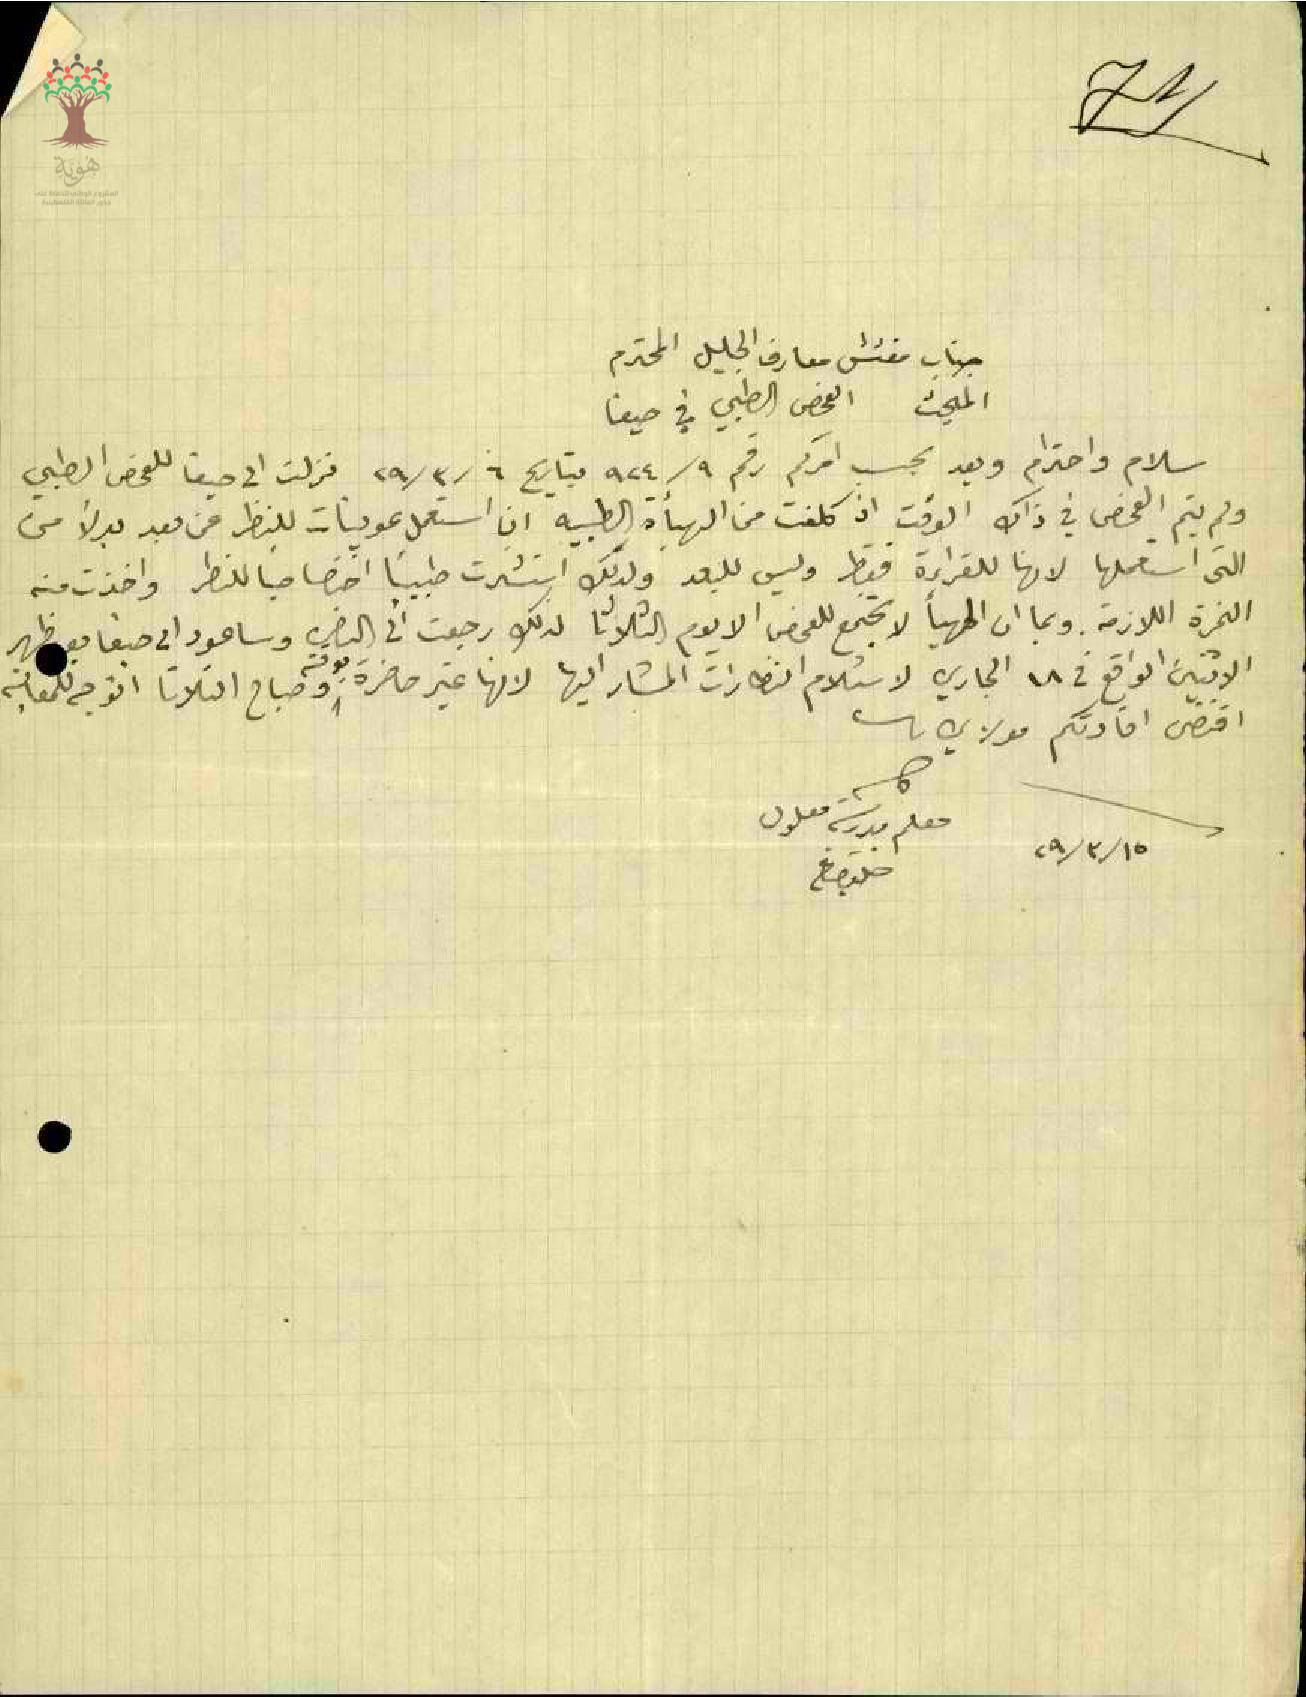 71
هوية
المشروع الوطني للحفاظ على
جذور العائلة الفلسطينية
جناب مفتش معارف الجليل المحترم
المبحث الفحص الطبي في حيفا
سلام واحترام وبعد بحسب امركم رقم ٩/٩٢٤ بتاريخ ٦/٣/٢٩ نزلت الى حيفا للفحص الطبي
ولم يتم الفحص في ذاك الوقت اذ كلفت من الهيأة الطبيه ان استعمل عوينات للنظر عن بعد بدلاً من
التي استعملها لانها للقراءة فقط وليس للبعد ولذلك استشرت طبيبًا اخصاصيا للنظر واخذت منه
النمرة اللازمة. وبما ان الهيأ لا تجتمع للفحص الا يوم الثلاثا لذلك رجعت الى وساعود الى حيفا ظهر
الاثنين الواقع في ١٨ الجاري لاستلام النظارات المشار اليها لانها غير حاضرة وصباح الثلاثا اتوجه للمعاينة
اقتضى افادتكم مولاي
معلم مدرسة معلول
١٥/٣/٢٩